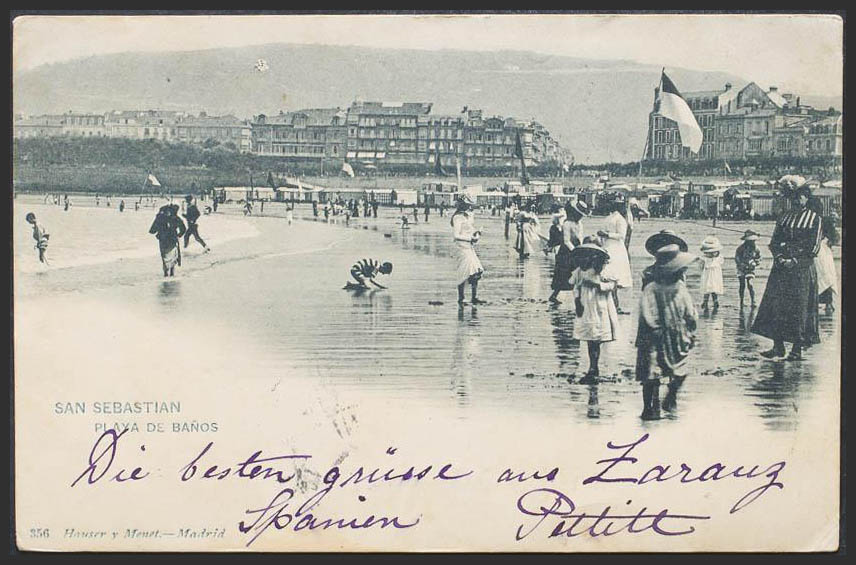 SAN SEBASTIAN
PLAYA DE BAÑOS
Die besten grüsse aus Zarauz
Spanien Pettitt
356 Hauser y Menet.—Madrid